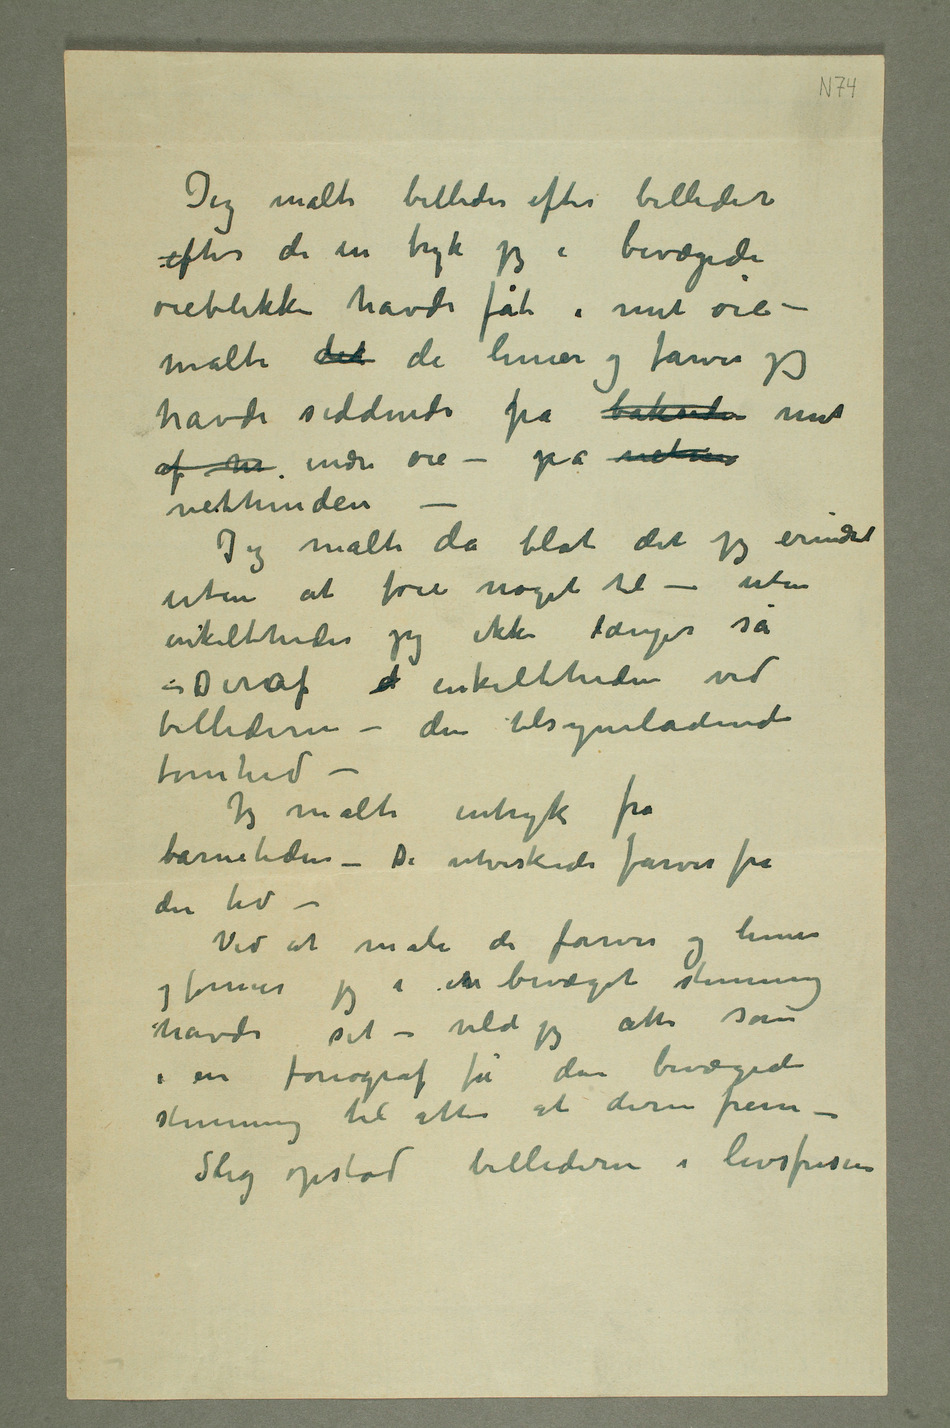 N74
Jeg malte billeder efter billeder
efter de intryk jeg i bevægede
øieblikke havde fåt i mit øie –
malte det de linier og farver jeg
havde siddende på baksiden mit
af m indre øie – på nethin
netthinden –
Jeg malte da blot det jeg erindret
uten at føie noget til – uten
enkeltheder jeg ikke længer så
– Deraf d enkeltheden ved
billederne – den tilsyneladende
tomhed –
Jeg malte intryk fra
barnetiden – De utviskede farver fra
den tid –
Ved at male de farver og linier
og former jeg i en bevæget stemning
havde set – vilde jeg atter som
i en fonograf få den bevægede
stemning til atter at dirre frem –
Slig opstod billederne i livsfrisen